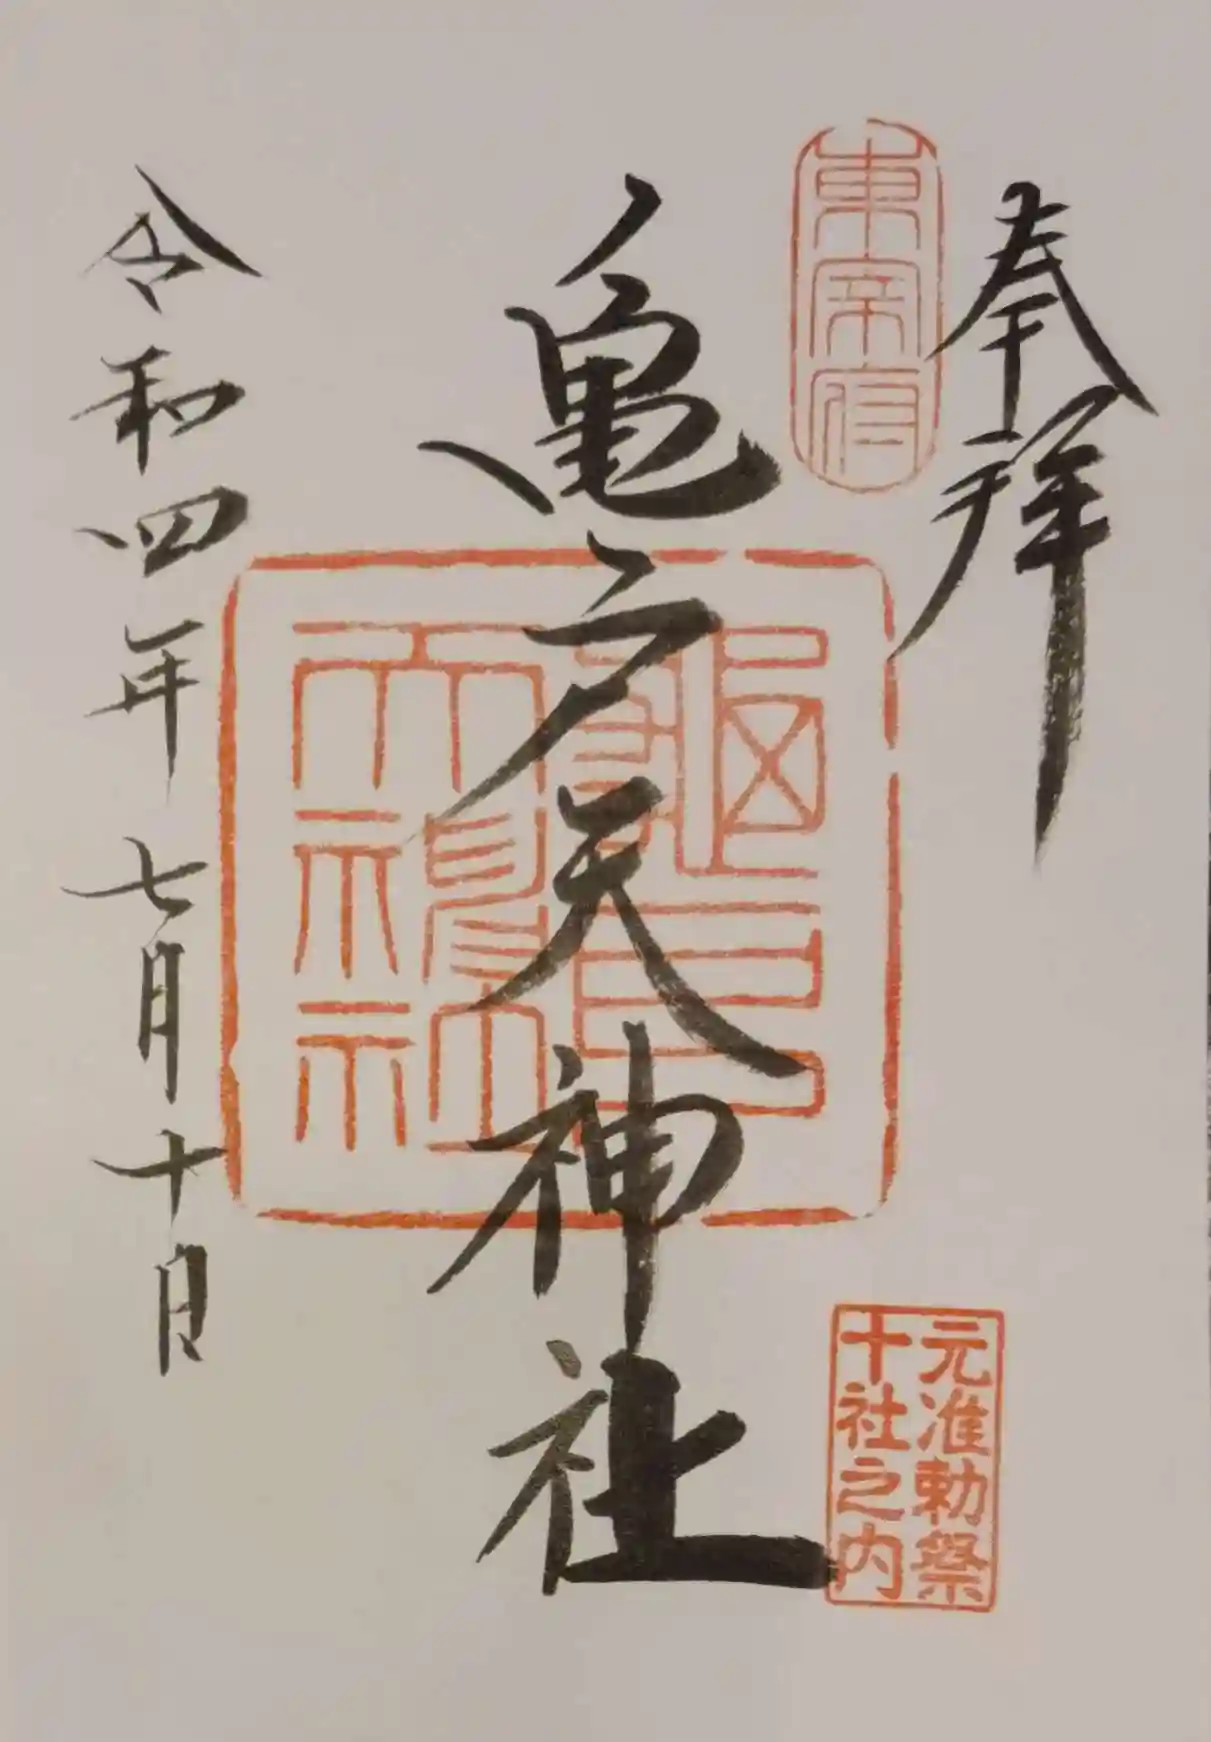 奉拝
東宰府
亀戸天神社
元准勅祭
十社之内
令和四年七月十日